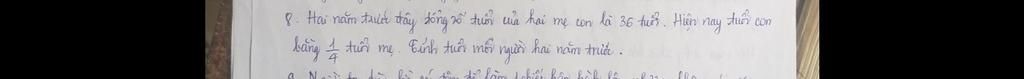 8. Hai năm trước đây tổng số tuổi của hai mẹ con là 36 tuổi. Hiện nay tuổi con
bằng 1/4 tuổi mẹ. Tính tuổi mỗi người hai năm trước.